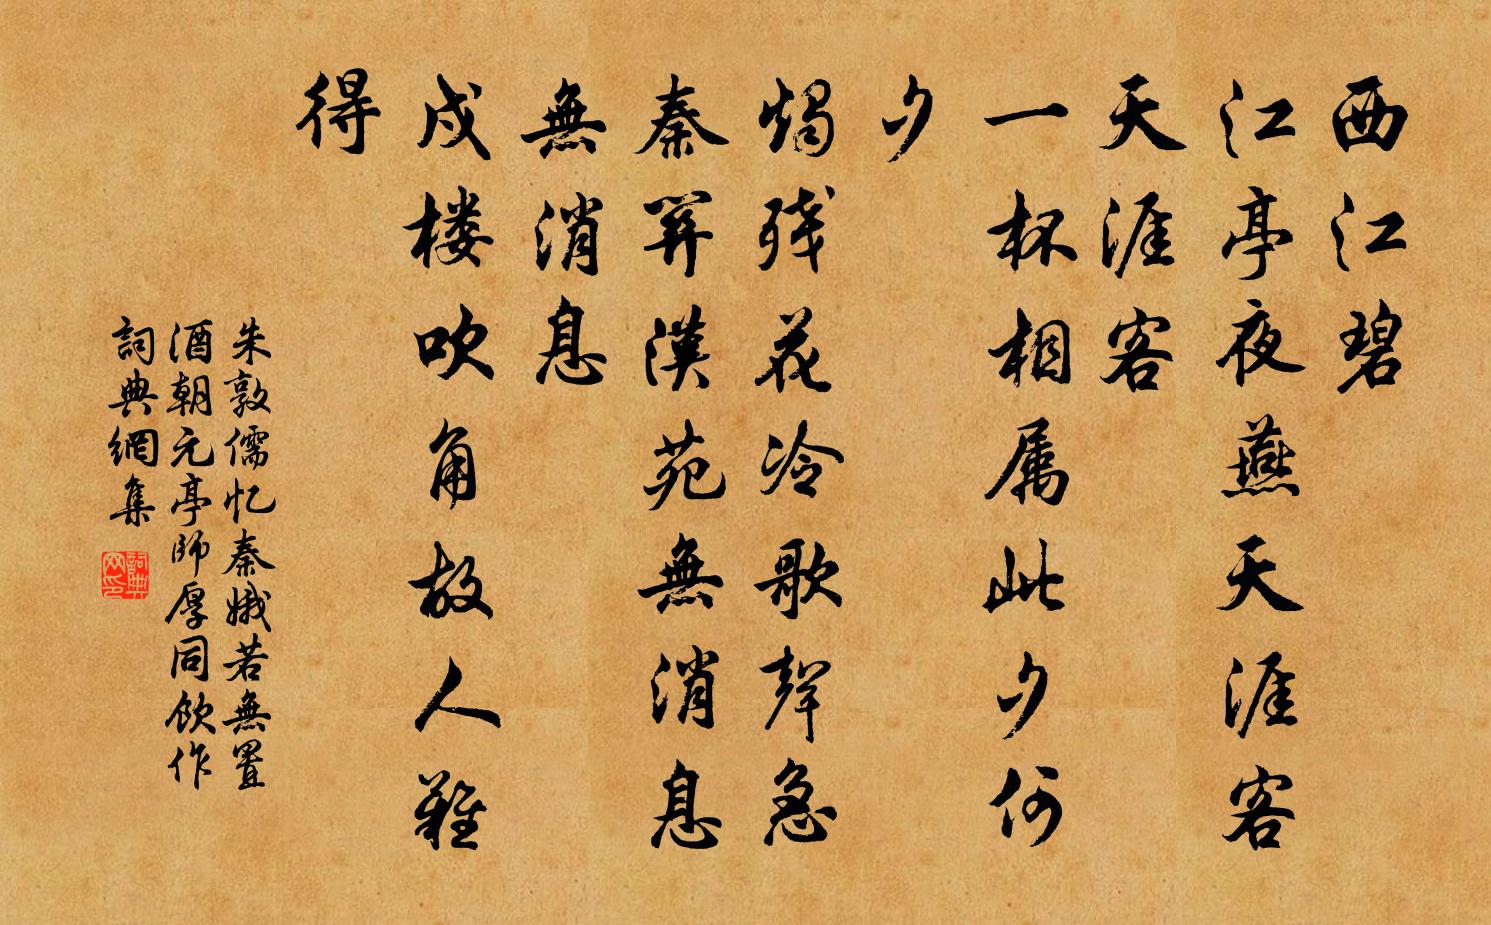 西江碧
江亭夜燕天涯客
天涯客
一杯相属此夕何
夕
燭残花冷歌聲急
秦關漢苑無消息
無消息
戍楼吹角故人難
得
朱敦儒忆秦娥若無置
酒朝元亭師厚同飲作
詞典網集
詞典网印